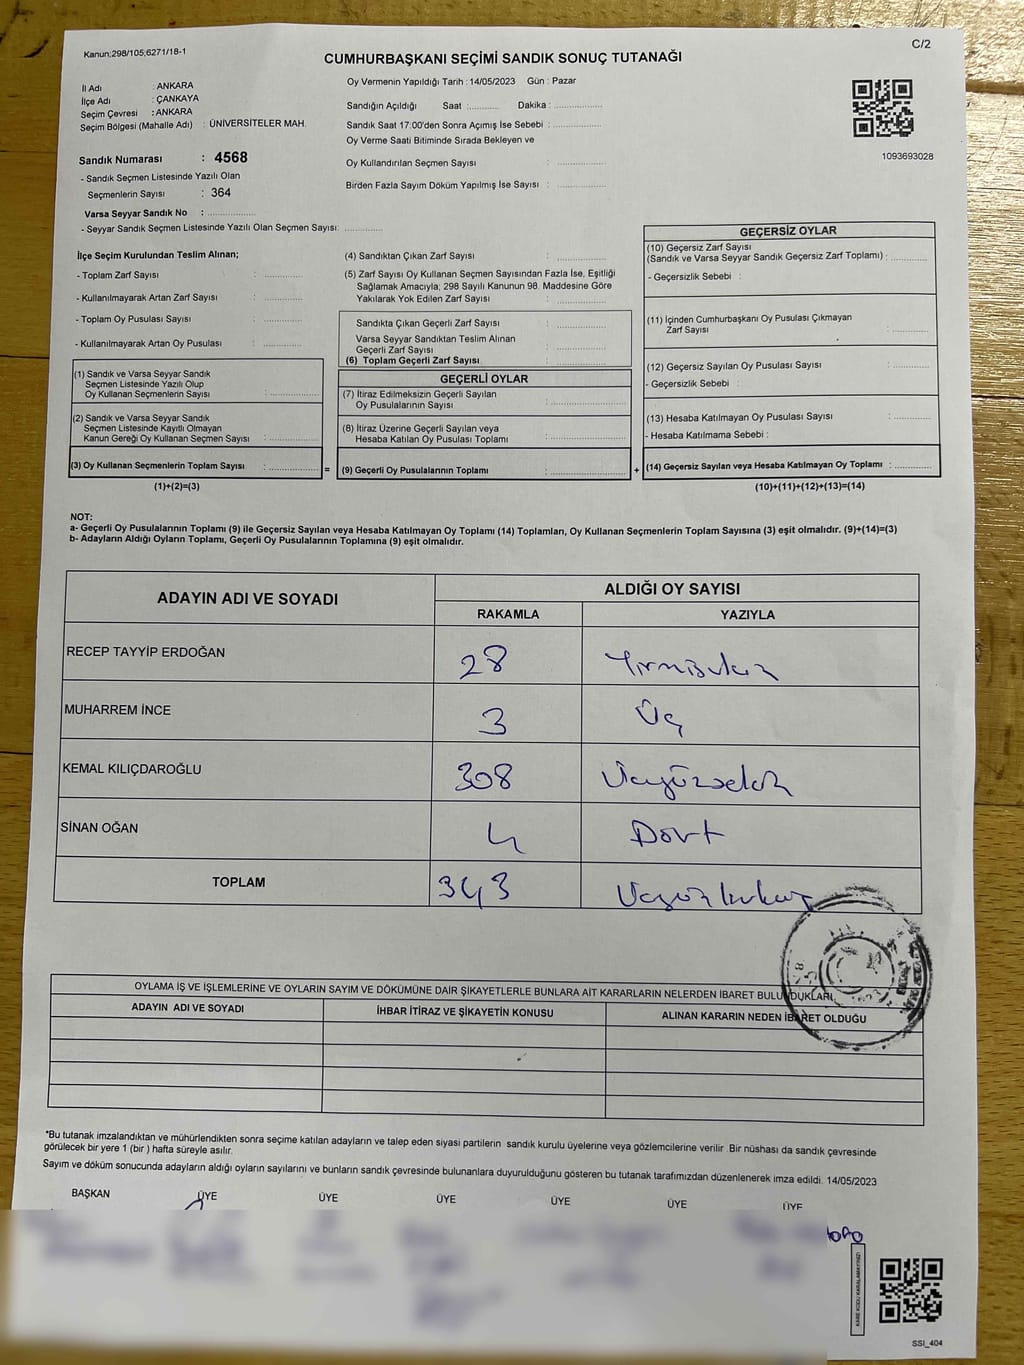 Kanun;298/105;6271/18-1
C/2
CUMHURBAŞKANI SEÇİMİ SANDIK SONUÇ TUTANAĞI
İl Adı : ANKARA
İlçe Adı : ÇANKAYA
Seçim Çevresi : ANKARA
Seçim Bölgesi (Mahalle Adı) : ÜNİVERSİTELER MAH.
Sandık Numarası : 4568
- Sandık Seçmen Listesinde Yazılı Olan
Seçmenlerin Sayısı : 364
Varsa Seyyar Sandık No : ...............
- Seyyar Sandık Seçmen Listesinde Yazılı Olan Seçmen Sayısı: ............
Oy Vermenin Yapıldığı Tarih : 14/05/2023 Gün : Pazar
Sandığın Açıldığı Saat :.......... Dakika : ...............
Sandık Saat 17:00'den Sonra Açımış İse Sebebi : ...............
Oy Verme Saati Bitiminde Sırada Bekleyen ve
Oy Kullandırılan Seçmen Sayısı : ...............
Birden Fazla Sayım Döküm Yapılmış İse Sayısı : ...............
1093693028
İlçe Seçim Kurulundan Teslim Alınan;
- Toplam Zarf Sayısı : ............
- Kullanılmayarak Artan Zarf Sayısı : ............
- Toplam Oy Pusulası Sayısı : ............
- Kullanılmayarak Artan Oy Pusulası : ............
(1) Sandık ve Varsa Seyyar Sandık
Seçmen Listesinde Yazılı Olup
Oy Kullanan Seçmenlerin Sayısı : ...............
(2) Sandık ve Varsa Seyyar Sandık
Seçmen Listesinde Kayıtlı Olmayan
Kanun Gereği Oy Kullanan Seçmen Sayısı : ...............
(3) Oy Kullanan Seçmenlerin Toplam Sayısı : ............... =
(1)+(2)=(3)
(4) Sandıktan Çıkan Zarf Sayısı : ...............
(5) Zarf Sayısı Oy Kullanan Seçmen Sayısından Fazla İse, Eşitliği
Sağlamak Amacıyla; 298 Sayılı Kanunun 98. Maddesine Göre
Yakılarak Yok Edilen Zarf Sayısı : ...............
Sandıkta Çıkan Geçerli Zarf Sayısı : ...............
Varsa Seyyar Sandıktan Teslim Alınan
Geçerli Zarf Sayısı : ...............
(6) Toplam Geçerli Zarf Sayısı : ...............
GEÇERLİ OYLAR
(7) İtiraz Edilmeksizin Geçerli Sayılan
Oy Pusulalarının Sayısı : ...............
(8) İtiraz Üzerine Geçerli Sayılan veya
Hesaba Katılan Oy Pusulası Toplamı : ...............
(9) Geçerli Oy Pusulalarının Toplamı : ............... +
GEÇERSİZ OYLAR
(10) Geçersiz Zarf Sayısı
(Sandık ve Varsa Seyyar Sandık Geçersiz Zarf Toplamı) : ............
- Geçersizlik Sebebi :
(11) İçinden Cumhurbaşkanı Oy Pusulası Çıkmayan
Zarf Sayısı : ............
(12) Geçersiz Sayılan Oy Pusulası Sayısı : ............
- Geçersizlik Sebebi :
(13) Hesaba Katılmayan Oy Pusulası Sayısı : ............
- Hesaba Katılmama Sebebi :
(14) Geçersiz Sayılan veya Hesaba Katılmayan Oy Toplamı : ............
(10)+(11)+(12)+(13)=(14)
NOT:
a- Geçerli Oy Pusulalarının Toplamı (9) ile Geçersiz Sayılan veya Hesaba Katılmayan Oy Toplamı (14) Toplamları, Oy Kullanan Seçmenlerin Toplam Sayısına (3) eşit olmalıdır. (9)+(14)=(3)
b- Adayların Aldığı Oyların Toplamı, Geçerli Oy Pusulalarının Toplamına (9) eşit olmalıdır.
ADAYIN ADI VE SOYADI ALDIĞI OY SAYISI
RAKAMLA YAZIYLA
RECEP TAYYİP ERDOĞAN 28 Yirmisekiz
MUHARREM İNCE 3 Üç
KEMAL KILIÇDAROĞLU 308 Üçyüzsekiz
SİNAN OĞAN 4 Dört
TOPLAM 343
OYLAMA İŞ VE İŞLEMLERİNE VE OYLARIN SAYIM VE DÖKÜMÜNE DAİR ŞİKAYETLERLE BUNLARA AİT KARARLARIN NELERDEN İBARET BULUNDUKLARI
ADAYIN ADI VE SOYADI İHBAR İTİRAZ VE ŞİKAYETİN KONUSU ALINAN KARARIN NEDEN İBARET OLDUĞU
*Bu tutanak imzalandıktan ve mühürlendikten sonra seçime katılan adayların ve talep eden siyasi partilerin sandık kurulu üyelerine veya gözlemcilerine verilir. Bir nüshası da sandık çevresinde
görülecek bir yere 1 (bir) hafta süreyle asılır.
Sayım ve döküm sonucunda adayların aldığı oyların sayılarını ve bunların sandık çevresinde bulunanlara duyurulduğunu gösteren bu tutanak tarafımızdan düzenlenerek imza edildi. 14/05/2023
BAŞKAN ÜYE ÜYE ÜYE ÜYE ÜYE ÜYE
KARE KODU KARALAMAYINIZ!
SSI_404